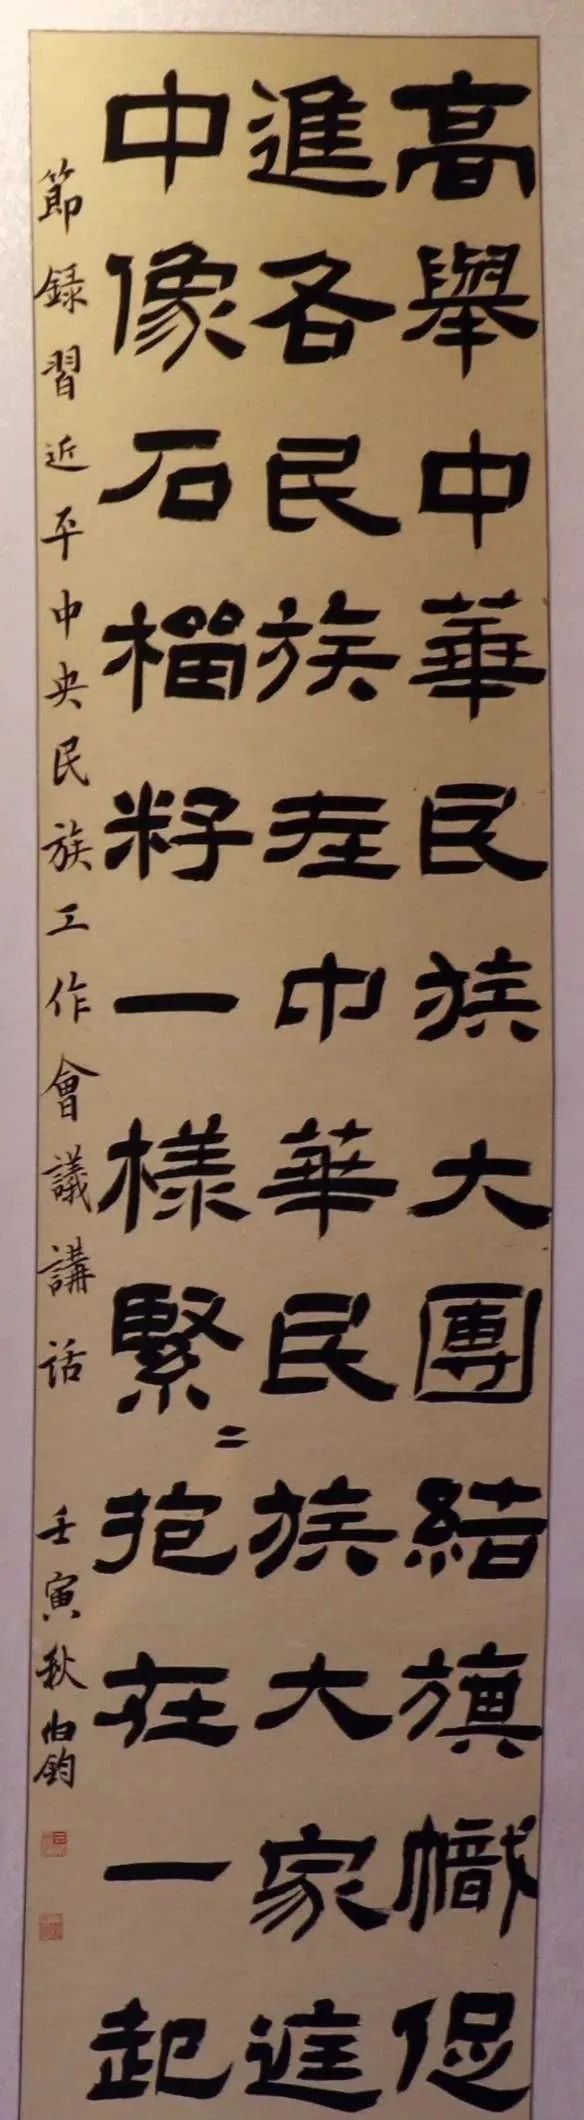 高舉中華民族大團結旗幟促
進各民族在中華民族大家庭
中像石榴籽一樣緊〻抱在一起
節録習近平中央民族工作會議講話 壬寅秋伯鈞